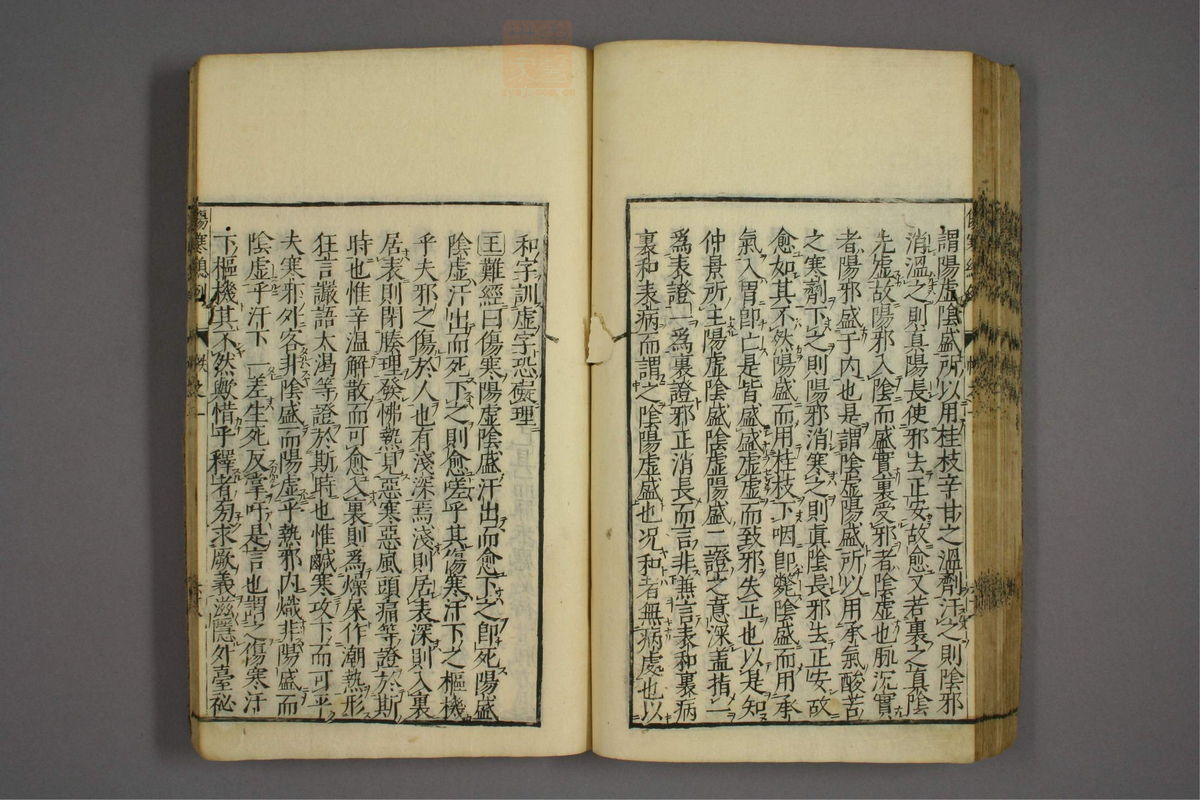 謂陽虛陰盛所以用桂枝辛甘之溫劑汗之則陰邪
消溫之則眞陽長使邪去正安故愈又若裏之眞陰
先虛故陽邪入陰而盛實裏受邪者陰虛也脈沉實
者陽邪盛于内也是謂陰虛陽盛所以用承氣酸苦
之寒劑下之則陽邪消寒之則眞陰長邪去正安故
愈如其不然陽盛而用桂枝下咽即斃陰盛而用承
氣入胃即亡是皆盛盛虛虛而致邪失正也以是知
仲景所主陽虛陰盛陰虛陽盛二證之意深盖指一
爲表證一爲裏證邪正消長而言非兼言表和裏病
裏和表病而謂之陰陽虛盛也况和者無病處也以
和字訓虛字恐礙理
王難經曰傷寒陽虛陰盛汗出而愈下之即死陽盛
陰虛汗出而死下之則愈嗟乎其傷寒汗下之樞機
乎夫邪之傷於人也有淺深焉淺則居表深則入裏
居表則閉腠理發怫熱見惡寒惡風頭痛等證於斯
時也惟辛温解散而可愈入裏則爲燥屎作潮熱形
狂言讝語大渴等證於斯時也惟鹹寒攻下而可平
夫寒邪外客非陰盛而陽虛乎熱邪内熾非陽盛而
陰虛乎汗下一差生死反掌吁是言也謂之傷寒汗
下樞機其不然歟惜乎釋者旁求厥義滋隱外臺祕
傷寒總例